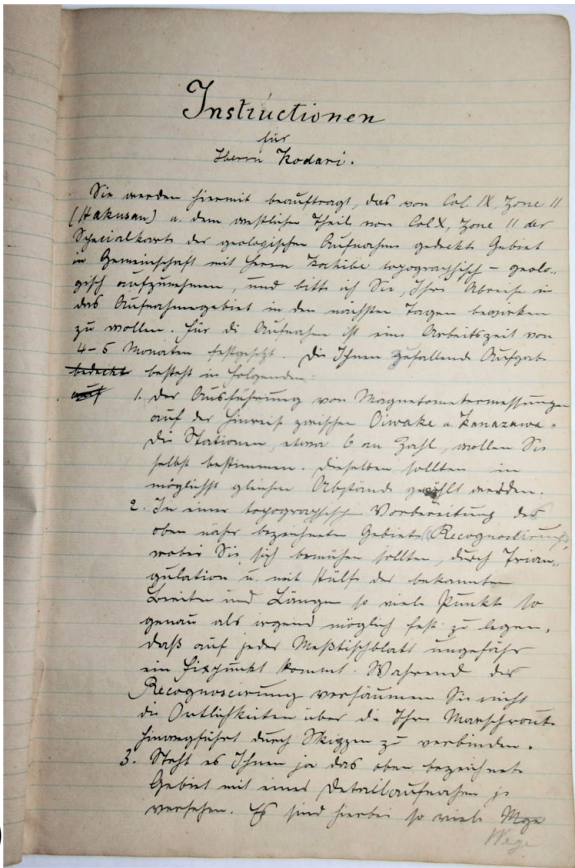 Instructionen
für
Herrn Kodari.
Sie werden hiermit beauftragt, das von Col IX, Zone 11
(Hakusan) u. dem westlichen Theil von Col X, Zone 11 der
Specialkarte der geologischen Aufnahme gedeckte Gebiet
in Gemeinschaft mit Herrn topographisch-geolo-
gisch aufzunehmen, und bitte ich Sie, Ihre Abreise in
das Aufnahmegebiet in den nächsten Tagen bewirken
zu wollen. Für di Aufnahme ist eine Arbeitszeit von
4-5 Monaten festgesetzt. Die Ihnen zufallende Aufgabe
besteht in Folgenden:
1. Der Ausführung von Magnetometermessungen
auf der Hinreise zwischen Oiwake u. Kanazawa.
Die Stationen, etwa 6 an Zahl, wollen Sie
selbst bestimmen. Dieselben sollten in
möglichst gleichen Abstände gewählt werden.
2. In einer topographisch Vorbereitung des
oben näher bezeichneten Gebiets (Recognoscirung),
wobei Sie sich bemühen sollten, durch Trian-
gulation u. mit Hülfe der bekannten
Breiten und Längen so viele Punkte so
genau als irgend möglich fest zu legen,
daß auf jedes Meßtischblatt ungefähr
ein Fixpunkt kommt. Während der
Recognoscirung versäumen Sie nicht
die Örtlichkeiten über die Ihre Marschroute
hinwegführt durch Skizzen zu verbinden.
3. Steht es Ihnen das oben bezeichnete
Gebiet mit einer Detailaufnahme zu
versehen. Es sind hierbei so viele
Wege